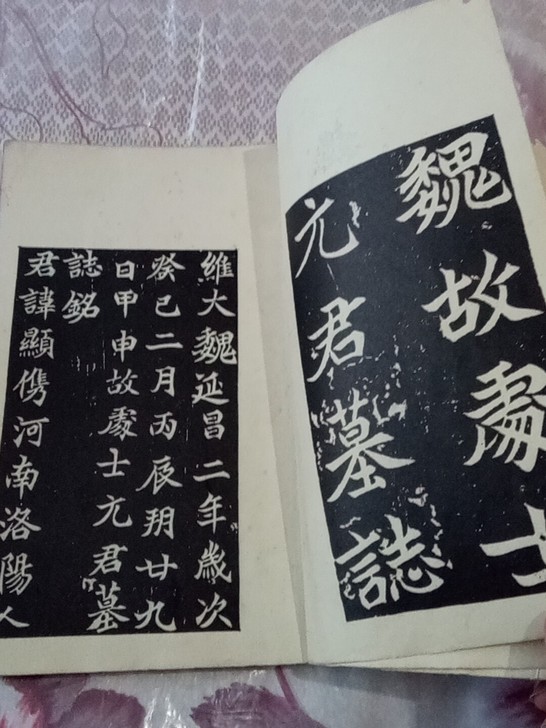 魏故處士
元君墓誌
維大魏延昌二年歲次
癸巳二月丙辰朔廿九
日甲申故處士元君墓
誌銘
君諱顯儁河南洛陽人